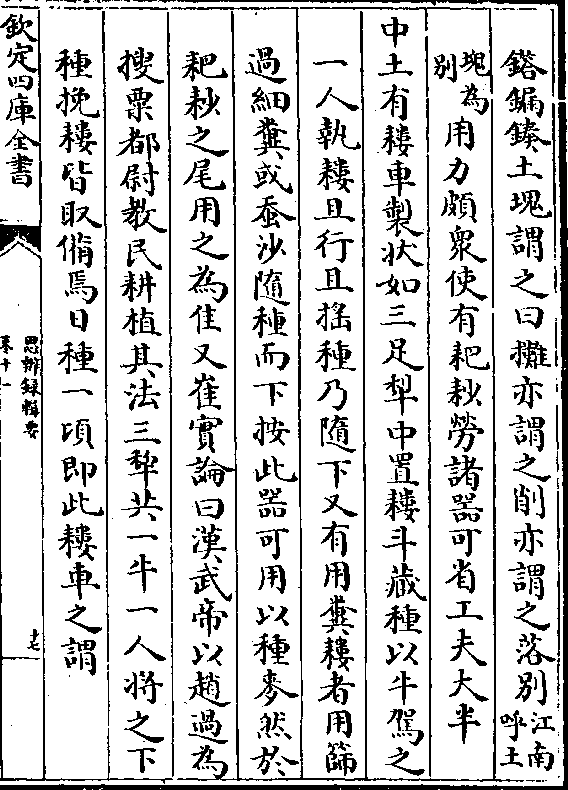 鐟鍽鍊土塊謂之曰攤亦謂之削亦謂之落别江南呼土
塊為别用力頗衆使有耙耖勞諸器可省工夫大半
中土有耬車製狀如三足犂中置耬斗藏種以牛駕之
一人執耬且行且摇種乃隨下又有用糞耬者用篩
過細糞或蚕沙隨種而下按此器可用以種麥然於
耙耖之尾用之為佳又崔實論曰漢武帝以趙過為
搜粟都尉教民耕植其法三犂共一牛一人將之下
種挽耬皆取備焉日種一頃即此耬車之謂
欽定四庫全書
思辨録輯要
卷十一
十七